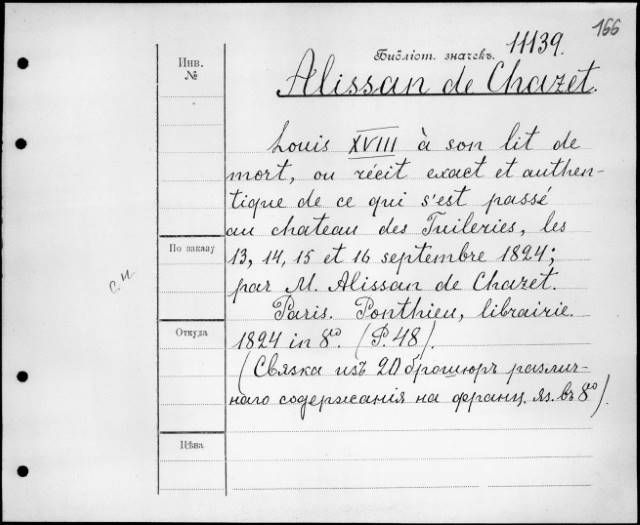 166
Инв.
№
Библіот. значекъ.
11139.
Alissan de Chazet.
Louis XVIII à son lit de
mort, ou récit exact et authen-
tique de ce qui s'est passé
au chateau des Tuileries, les
13, 14, 15 et 16 septembre 1824;
par M. Alissan de Chazet.
Paris. Ponthieu, librairie.
1824 in 8º. (P. 48).
(Связка изъ 20 брошюръ различ-
наго содержанія на франц. яз. въ 8º).
По заказу
с.и.
Откуда
Цѣна